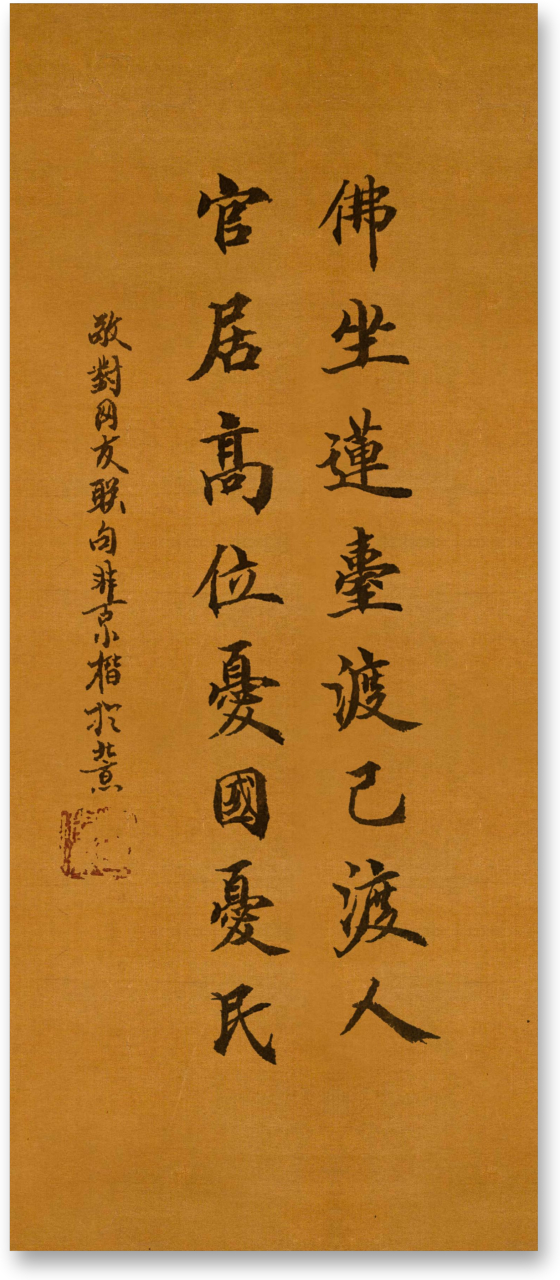 佛坐蓮臺渡己渡人
官居高位憂國憂民
敬對网友联句非京楷於北京